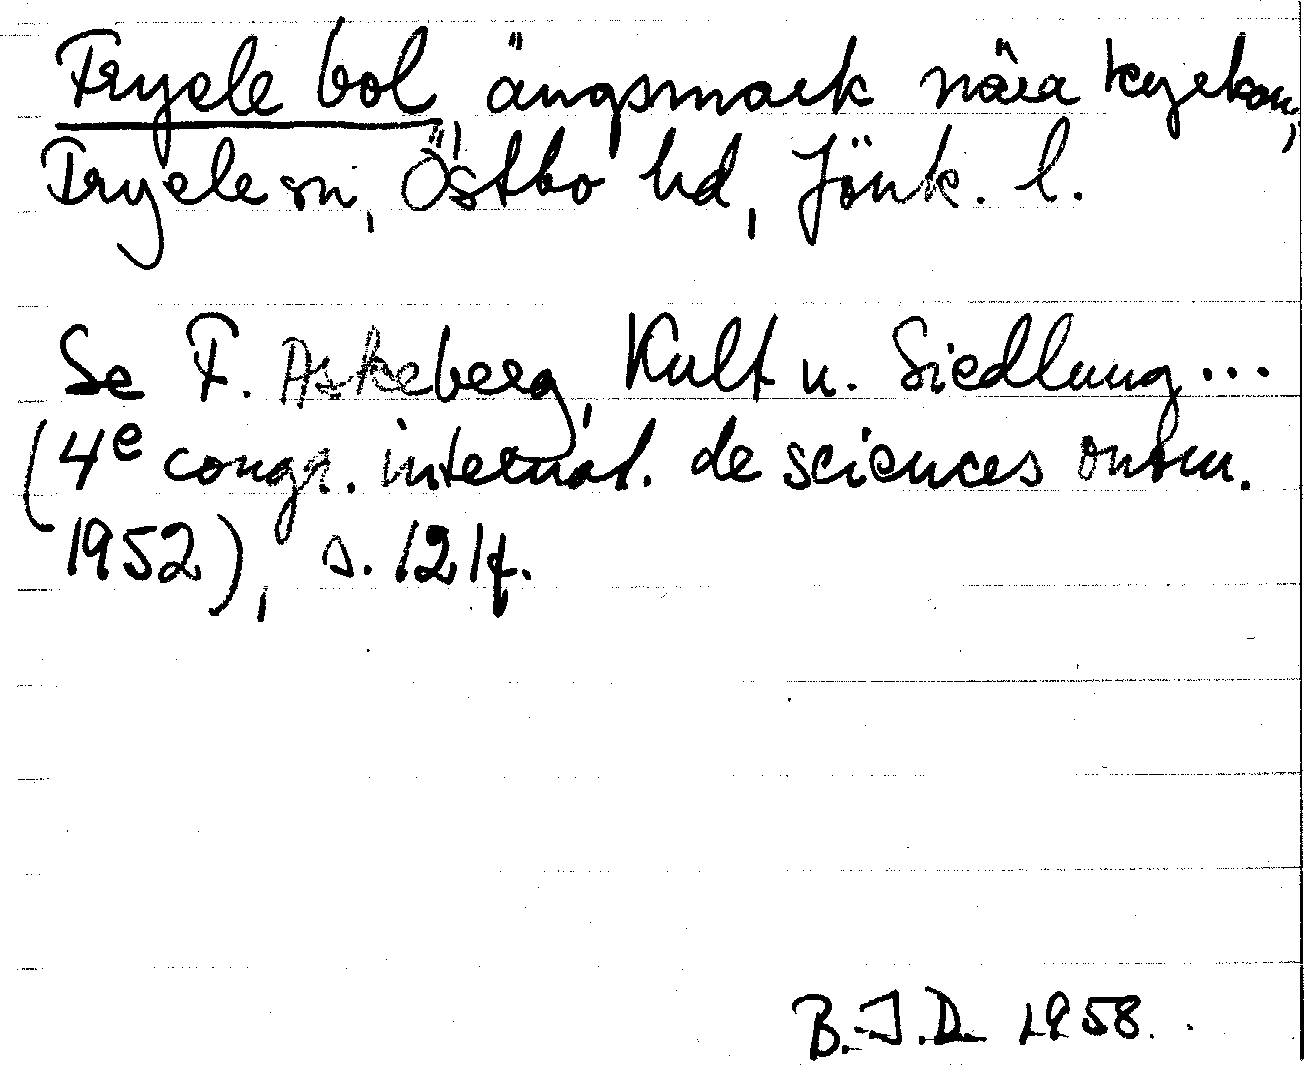 Fryele bol, ängsmark nära kyrkan,
Fryele sn, Östbo hd, Jönk. l.
Se F. Askeberg, Kult u. Siedlung...
(4e congr. internat. de sciences onom.
1952), s. 121f.
B.J.D. 1958.